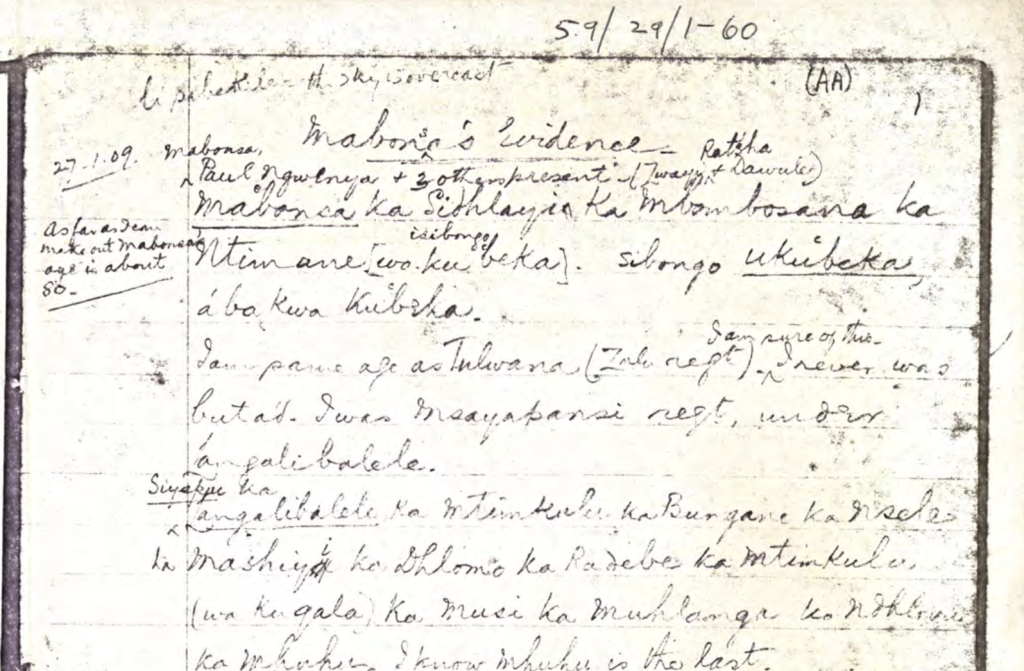 59/29/1-60
(AA)
1
the sky is overcast
Mabonsa's Evidence.
27.1.09. Mabonsa, Ratsha
Paul Ngwenya + 2 others present. (Jwayi + Dawule)
Mabonsa ka Sidhlayi ka Mbombosana ka
As far as I can make out Mabonsa's age is about 80.
isibongo
Ntimane [wa.ku beka]. sibongo ukubeka,
aba kwa Kubeka.
I am sure of this.
I am same age as Tulwana (Zulu regt). I never was
butad. I was Msayakansi regt, under
Langalibalele.
Siyepu ka
Langalibalele ka Mtimkulu ka Bungane ka Nsele
ka Mashiyi ka Dhlomo ka Radebe ka Mtimkulu
(wa kugala) ka Musi ka Muhlanga ka Ndhlovu
ka Mhuhu. I know Mhuhu is the last.